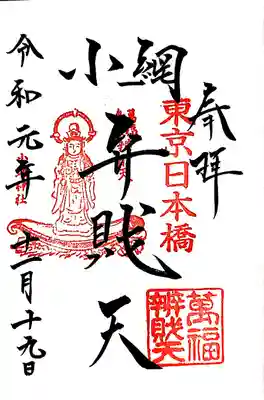 奉拝
東京日本橋
小網
弁財天
萬福
辨財天
令和元年十一月十九日